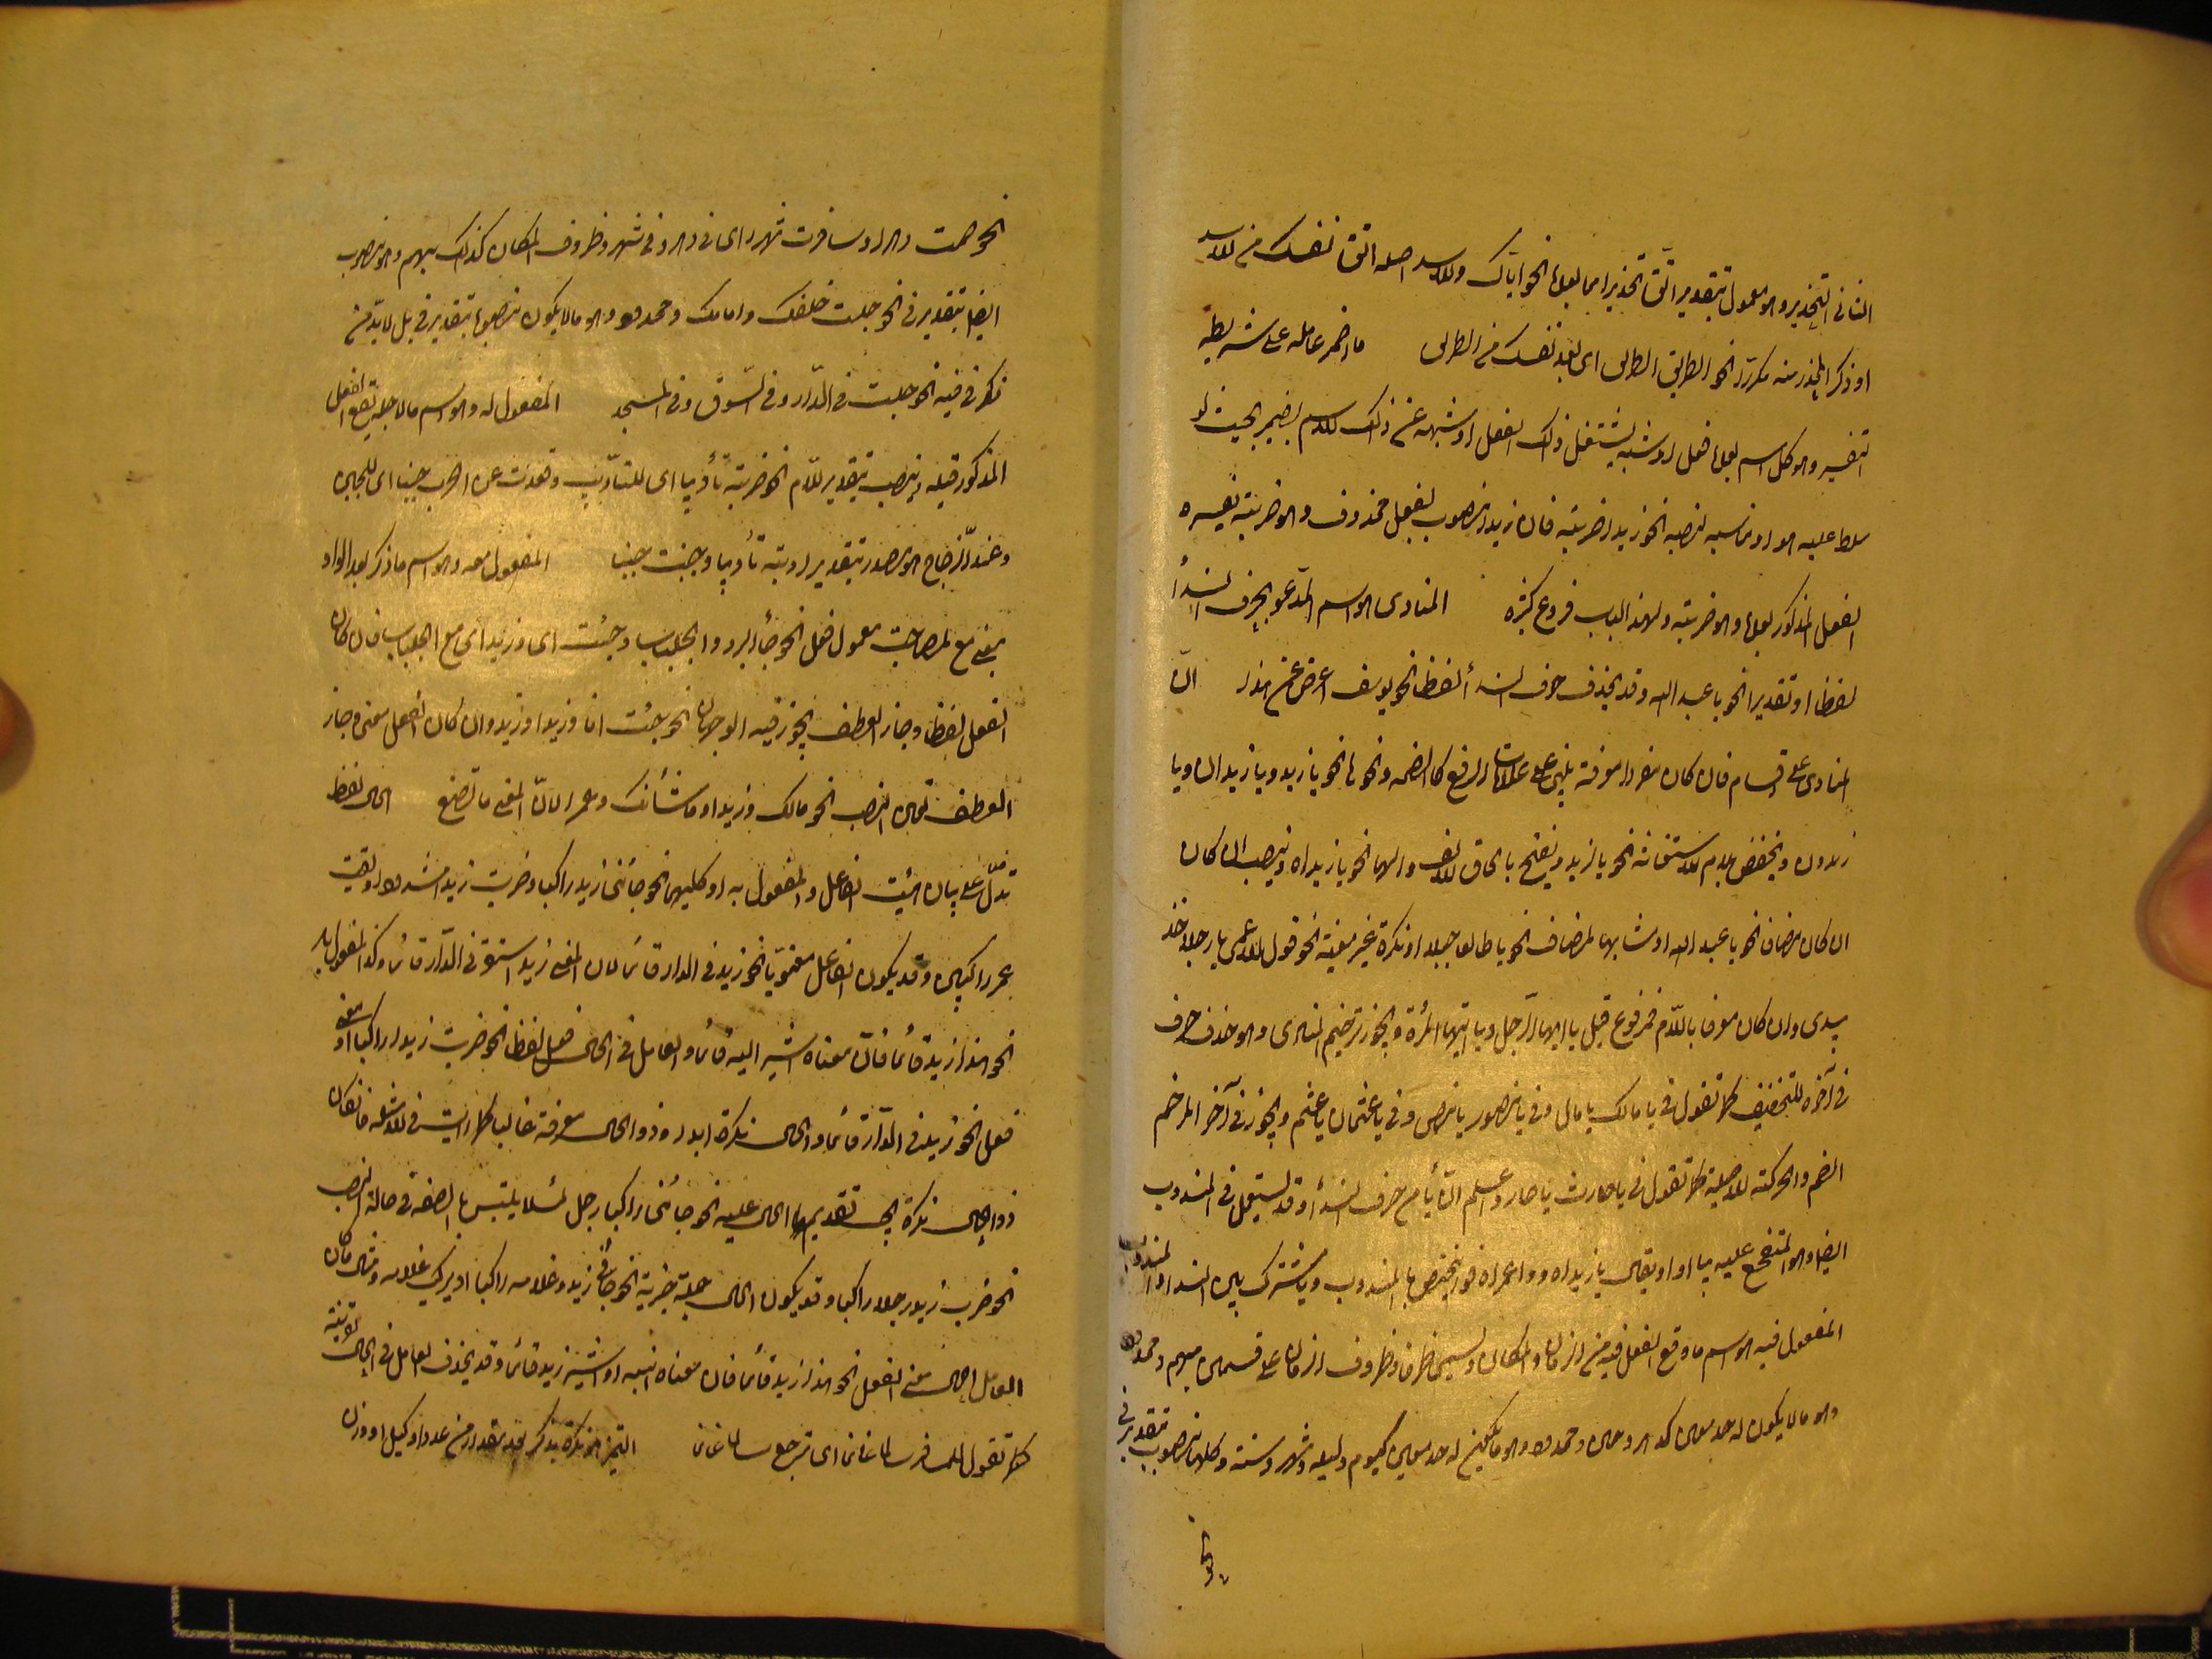 الثانی التحذیر وهو معمول بتقدیر اتّق تحذیرا مما بعده نحو ایاک والاسد اصله اتق نفسک من الاسد
او ذکر المحذر منه مکررا نحو الطریق الطریق ای بعد نفسک من الطریق ما اضمر عامله علی شریطة
التفسیر وهو کل اسم بعده فعل او شبهه یشتغل ذلک الفعل او شبهه عن ذلک الاسم بضمیره بحیث لو
سلط علیه هو او مناسبه لنصبه نحو زیدا ضربته فان زیدا منصوب بفعل محذوف وهو ضربته یفسره
الفعل المذکور بعده وهو ضربته ولهذا الباب فروع کثیرة المنادی هو اسم المدعو بحرف الندأ
لفظا او تقدیرا نحو یا عبد الله وقد یحذف حرف الندأ لفظا نحو یوسف اعرض عن هذا انّ
المنادی علی اقسام فان کان مفردا معرفة یبنی علی علامات الرفع کالضمه ونحوها نحو یا زید ویا زیدان ویا
زیدون ویخفض بلام الاستغاثه نحو یا لزید ویفتح بالحاق الالف والهاء نحو یا زیداه وینصب ان کان
ان کان مضافا نحو یا عبد الله او مشابها لمضاف نحو یا طالعا جبلا او نکرة غیر معینة نحو قول الاعمی یا رجلا خذ
بیدی وان کان معرفا باللّام فمرفوع قیل یا ایها الرّجل ویا ایتها المرأة ویجوز ترخیم المنادی وهو حذف حرف
فی آخره للتخفیف کما تقول فی یا مالک یا مال وفی یا منصور یا منص وفی یا عثمان یا عثم ویجوز فی آخر المرخم
الضم والحرکة الاصلیة کما تقول فی یا حارث یا حار واعلم انّ یا من حرف الندأ وقد یستعمل فی المندوب
ایضا وهو المتفجع علیه بیا او وا ویقال یا زیداه ووا عمراه فوا یختص بالمندوب ویا مشترک بین الندا والمندوب
المفعول فیه هو اسم ما وقع الفعل فیه من الزمان والمکان ویسمی ظرفا وظروف الزمان علی قسمین مبهم ومحدود
وهو ما لا یکون له حد معین کدهر وحین ومحدود وهو ما یکون له حد معین کیوم ولیله وشهر وسنة وکلها منصوب بتقدیر فی
نحو
نحو صمت دهرا وسافرت شهرا ای فی دهر وفی شهر وظروف المکان کذلک مبهم وهو منصوب
ایضا بتقدیر فی نحو جلست خلفک وامامک ومحدود وهو ما لا یکون منصوبا بتقدیر فی بل لا بدّ من
ذکر فی فیه نحو جلست فی الدّار وفی السّوق وفی المسجد المفعول له وهو اسم ما لاجله یقع الفعل
المذکور قبله وینصب بتقدیر اللّام نحو ضربته تأدیبا ای للتأدیب وقعدت عن الحرب جبنا ای للجبن
وعند الزّجاج هو مصدر تقدیره ادبته تأدیبا وجبنت جبنا المفعول معه وهو اسم ما ذکر بعد الواو
بمعنی مع لمصاحبة معمول فعل نحو جأ البرد والجلباب وجئت انا وزیدا ای مع الجلباب فان کان
الفعل لفظا وجاز العطف یجوز فیه الوجهان نحو جئت انا وزیدا وزید وان کان الفعل معنی وجاز
العطف تعین النصب نحو مالک وزیدا وما شأنک وعمرا لانّ المعنی ما تصنع الحال لفظ
تدلّ علی بیان هیئت الفاعل والمفعول به او کلیهما نحو جائنی زید راکبا وضربت زیدا مشدودا ولقیت
عمرا راکبین وقد یکون الفاعل معنویّا نحو زید فی الدار قائما لان المعنی زید استقر فی الدّار قائما وکذا المفعول به
نحو هذا زید قائما فانّ معناه اشیر الیه قائما والعامل فی الحال فعل لفظا نحو ضربت زیدا راکبا او معنی
فعل نحو زید فی الدّار قائما والحال نکرة ابدا وذو الحال معرفة غالبا کما رایت فی الامثلة فان کان
ذو الحال نکرة یجب تقدیم الحال علیه نحو جائنی راکبا رجل لئلا یلتبس بالصفة فی حالة النصب
نحو ضرب زید رجلا راکبا وقد یکون الحال جملة خبریة نحو جائنی زید وغلامه راکبا او یرکب غلامه ومثال ما کان
العامل الحال معنی الفعل نحو هذا زید قائما فان معناه انبه او اشیر زید قائما وقد یحذف العامل فی الحال لقرینة
کما تقول للمسافر سالما غانما ای ترجع سالما غانما التمیز هو نکرة یذکر بعد مقدار من عدد او کیل او وزن